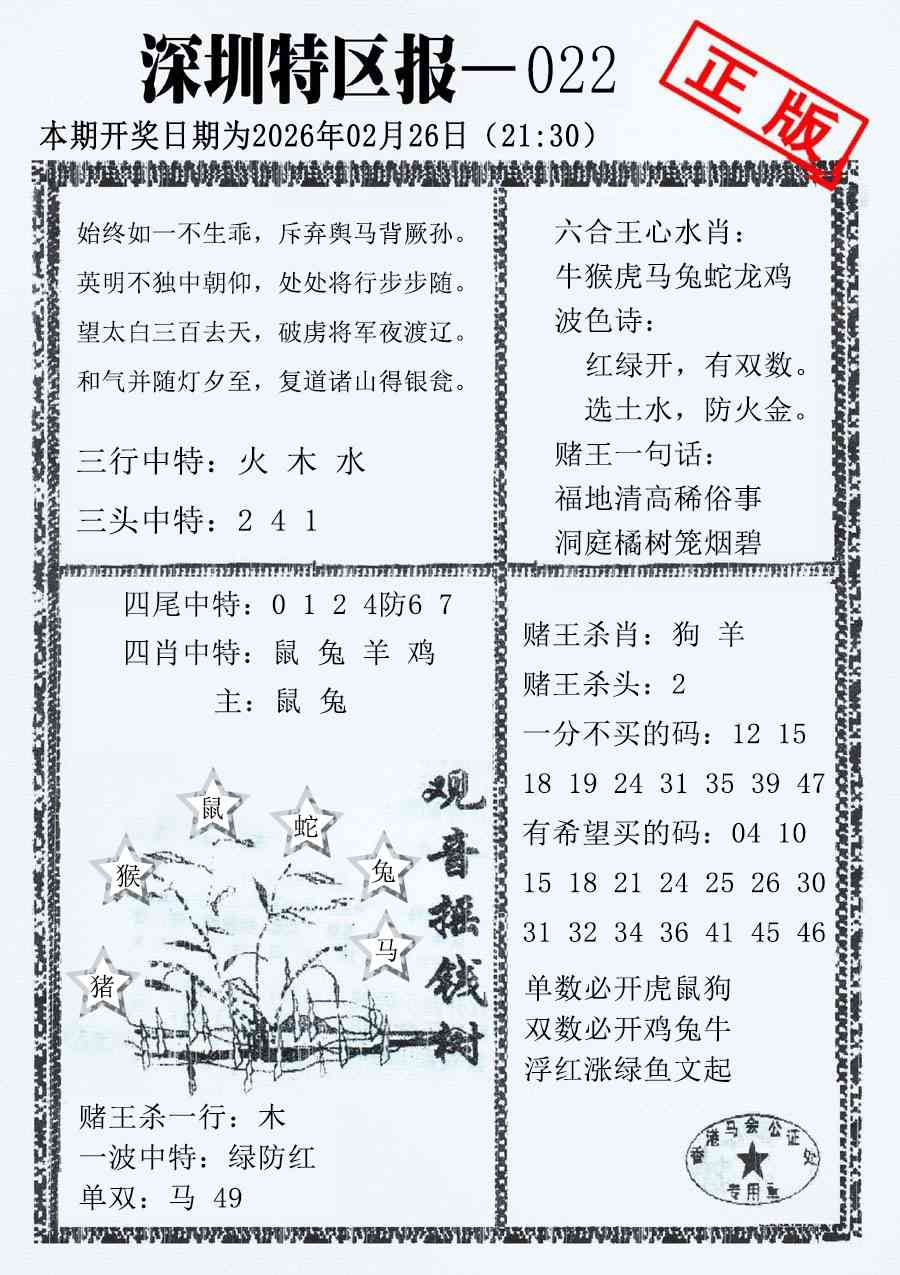 深圳特区报—022
正版
本期开奖日期为2026年02月26日（21:30）
始终如一不生乖，斥弃舆马背厥孙。
英明不独中朝仰，处处将行步步随。
望太白三百去天，破虏将军夜渡辽。
和气并随灯夕至，复道诸山得银瓮。
三行中特：火 木 水
三头中特：2 4 1
六合王心水肖：
牛猴虎马兔蛇龙鸡
波色诗：
红绿开，有双数。
选土水，防火金。
赌王一句话：
福地清高稀俗事
洞庭橘树笼烟碧
四尾中特：0 1 2 4防6 7
四肖中特：鼠 兔 羊 鸡
主：鼠 兔
鼠
蛇
猴
兔
马
猪
观音摇钱树
赌王杀一行：木
一波中特：绿防红
单双：马 49
赌王杀肖：狗 羊
赌王杀头：2
一分不买的码：12 15
18 19 24 31 35 39 47
有希望买的码：04 10
15 18 21 24 25 26 30
31 32 34 36 41 45 46
单数必开虎鼠狗
双数必开鸡兔牛
浮红涨绿鱼文起
香港马会公证处
专用章